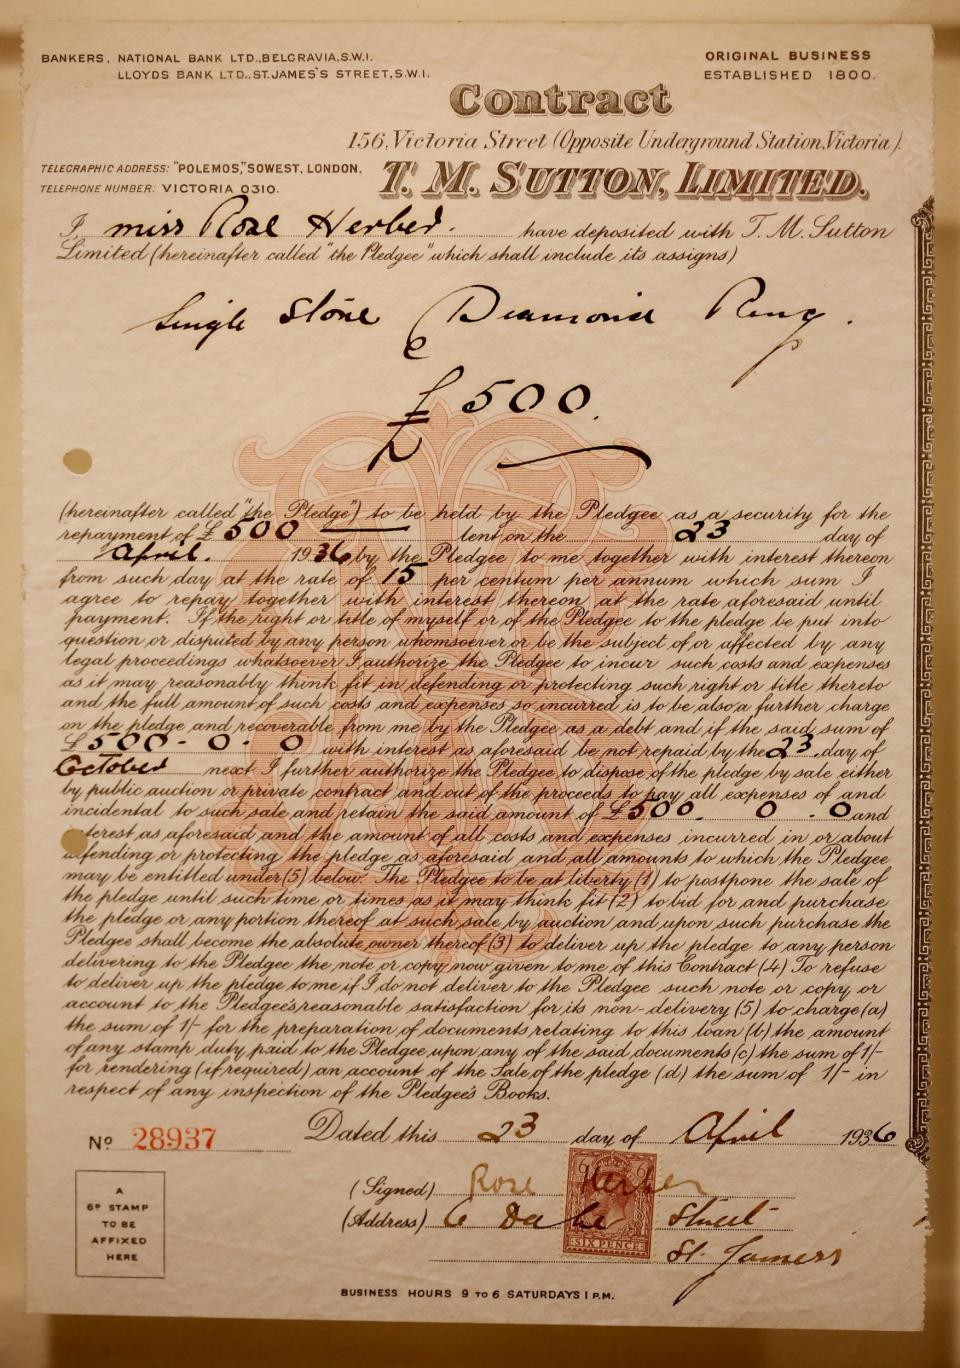 BANKERS, NATIONAL BANK LTD., BELGRAVIA, S.W.1.
LLOYDS BANK LTD., ST. JAMES'S STREET, S.W.1.
ORIGINAL BUSINESS
ESTABLISHED 1800.
Contract
156, Victoria Street (Opposite Underground Station, Victoria).
TELEGRAPHIC ADDRESS: "POLEMOS," SOWEST, LONDON.
TELEPHONE NUMBER: VICTORIA 0310.
T. M. SUTTON, LIMITED.
I miss Rose Herber. have deposited with T. M. Sutton
Limited (hereinafter called "the Pledgee" which shall include its assigns)
Single Stone Diamond Ring.
£500.
(hereinafter called "the Pledge") to be held by the Pledgee as a security for the
repayment of £500 lent on the 23 day of
April. 1936 by the Pledgee to me together with interest thereon
from such day at the rate of 15 per centum per annum which sum I
agree to repay together with interest thereon at the rate aforesaid until
payment. If the right or title of myself or of the Pledgee to the pledge be put into
question or disputed by any person whomsoever or be the subject of or affected by any
legal proceedings whatsoever I authorize the Pledgee to incur such costs and expenses
as it may reasonably think fit in defending or protecting such right or title thereto
and the full amount of such costs and expenses so incurred is to be also a further charge
on the pledge and recoverable from me by the Pledgee as a debt and if the said sum of
£500-0.0 with interest as aforesaid be not repaid by the 23 day of
October next I further authorize the Pledgee to dispose of the pledge by sale either
by public auction or private contract and out of the proceeds to pay all expenses of and
incidental to such sale and retain the said amount of £500. 0.0 and
interest as aforesaid and the amount of all costs and expenses incurred in or about
defending or protecting the pledge as aforesaid and all amounts to which the Pledgee
may be entitled under (5) below. The Pledgee to be at liberty (1) to postpone the sale of
the pledge until such time or times as it may think fit (2) to bid for and purchase
the pledge or any portion thereof at such sale by auction and upon such purchase the
Pledgee shall become the absolute owner thereof (3) to deliver up the pledge to any person
delivering to the Pledgee the note or copy now given to me of this Contract (4) To refuse
to deliver up the pledge to me if I do not deliver to the Pledgee such note or copy or
account to the Pledgee's reasonable satisfaction for its non-delivery (5) to charge (a)
the sum of 1/- for the preparation of documents relating to this loan (b) the amount
of any stamp duty paid to the Pledgee upon any of the said documents (c) the sum of 1/-
for rendering (if required) an account of the Sale of the pledge (d) the sum of 1/- in
respect of any inspection of the Pledgee's Books.
Nº 28937
Dated this 23 day of April 1936
A
6D STAMP
TO BE
AFFIXED
HERE
(Signed) Rose Herber
(Address) 6 Street
St. James's
SIX PENCE
BUSINESS HOURS 9 TO 6 SATURDAYS 1 P.M.